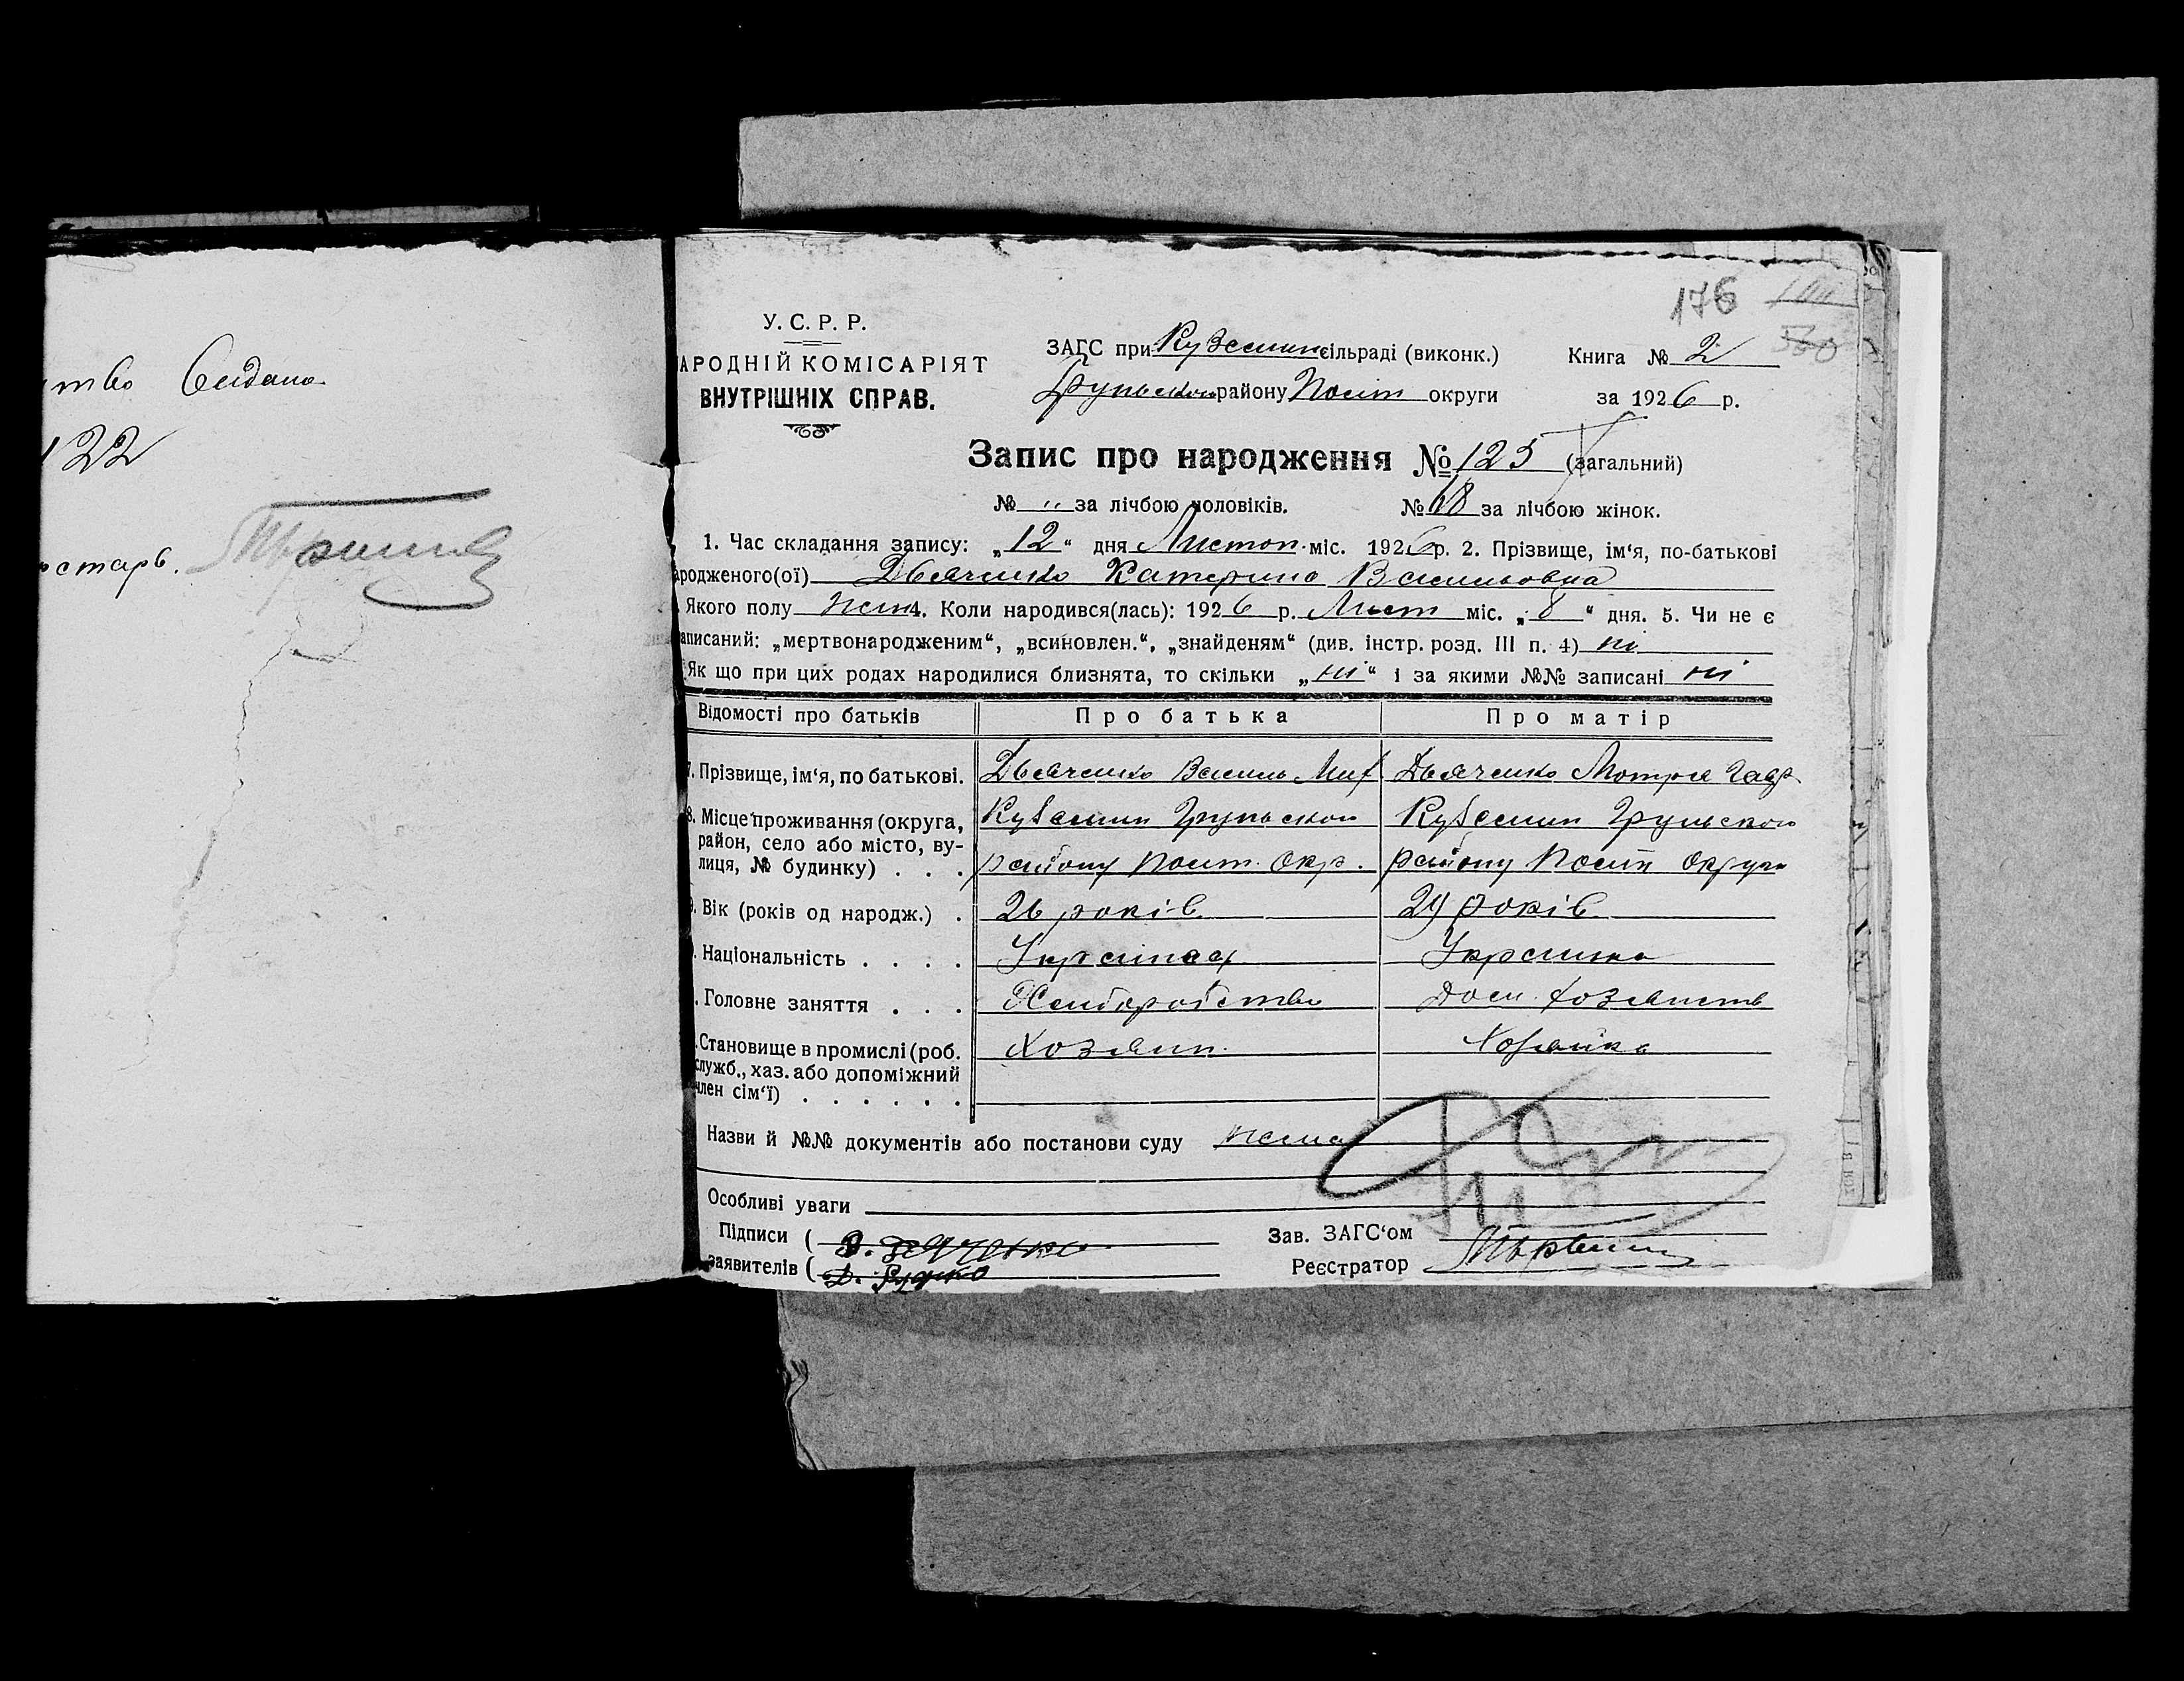 тво Видано
122
старв.
176
У. С. Р. Р.
АРОДНІЙ КОМІСАРІЯТ
ВНУТРІШНІХ СПРАВ.
ЗАГС при Куземин сільраді (виконк.)
Грунського району Полт округи
Книга № 2
за 1926 р.
Запис про народження № 125 (загальний)
№ „ за лічбою чоловіків. № 68 за лічбою жінок.
1. Час складання запису: „12“ дня Листоп. міс. 1926 р. 2. Прізвище, ім‘я, по-батькові
ародженого(ої) Дьяченко Катерина Васильовна
Якого полу жін 4. Коли народився(лась): 1926 р. Лист міс. „8“ дня. 5. Чи не є
аписаний: „мертвонародженим“, „всиновлен.“, „знайденям“ (див. інстр. розд. III п. 4) ні
Як що при цих родах народилися близнята, то скільки „ні“ і за якими №№ записані ні
Відомості про батьків Про батька Про матір
7. Прізвище, ім‘я, по батькові. Дьяченко Василь Мих Дьяченко Мотря Гавр
8. Місце проживання (округа, Куземин Грунського Куземин Грунського
район, село або місто, ву-
лиця, № будинку) . . . району Полт. Окр. району Полт Округи
9. Вік (років од народж.) . 26 років 24 років
. Національність . . . . Українец Українка
. Головне заняття . . . Хлиборобство Дом. хозяиств
. Становище в промислі (роб. Хозяин. Хозяйка
служб., хаз. або допоміжний
член сім‘ї) . . . . . .
Назви й №№ документів або постанови суду нема
Особливі уваги
Підписи ( В. Дяченко
заявителів ( Д. Рудко
Зав. ЗАГС‘ом
Реєстратор